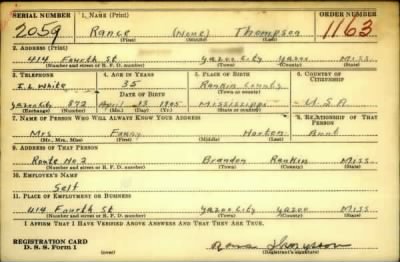 SERIAL NUMBER 1. NAME (Print) ORDER NUMBER
2059 Rance (None) Thompson 1163
(First) (Middle) (Last)
2. ADDRESS (Print)
414 Fourth St Yazoo City Yazoo Miss.
(Number and street or R. F. D. number) (Town) (County) (State)
3. TELEPHONE 4. AGE IN YEARS 5. PLACE OF BIRTH 6. COUNTRY OF CITIZENSHIP
I. L. White 35 Rankin County
DATE OF BIRTH (Town or county)
Yazoo City 872 April 13 1905 Mississippi U.S.A
(Exchange) (Number) (Mo.) (Day) (Yr.) (State or country)
7. NAME OF PERSON WHO WILL ALWAYS KNOW YOUR ADDRESS 8. RELATIONSHIP OF THAT PERSON
Mrs Fanny Horton Aunt
(Mr., Mrs., Miss) (First) (Middle) (Last)
9. ADDRESS OF THAT PERSON
Route No 2 Brandon Rankin Miss
(Number and street or R. F. D. number) (Town) (County) (State)
10. EMPLOYER'S NAME
Self
11. PLACE OF EMPLOYMENT OR BUSINESS
414 Fourth St Yazoo City Yazoo Miss.
(Number and street or R. F. D. number) (Town) (County) (State)
I AFFIRM THAT I HAVE VERIFIED ABOVE ANSWERS AND THAT THEY ARE TRUE.
REGISTRATION CARD
D. S. S. Form 1 (over) (Registrant's signature)